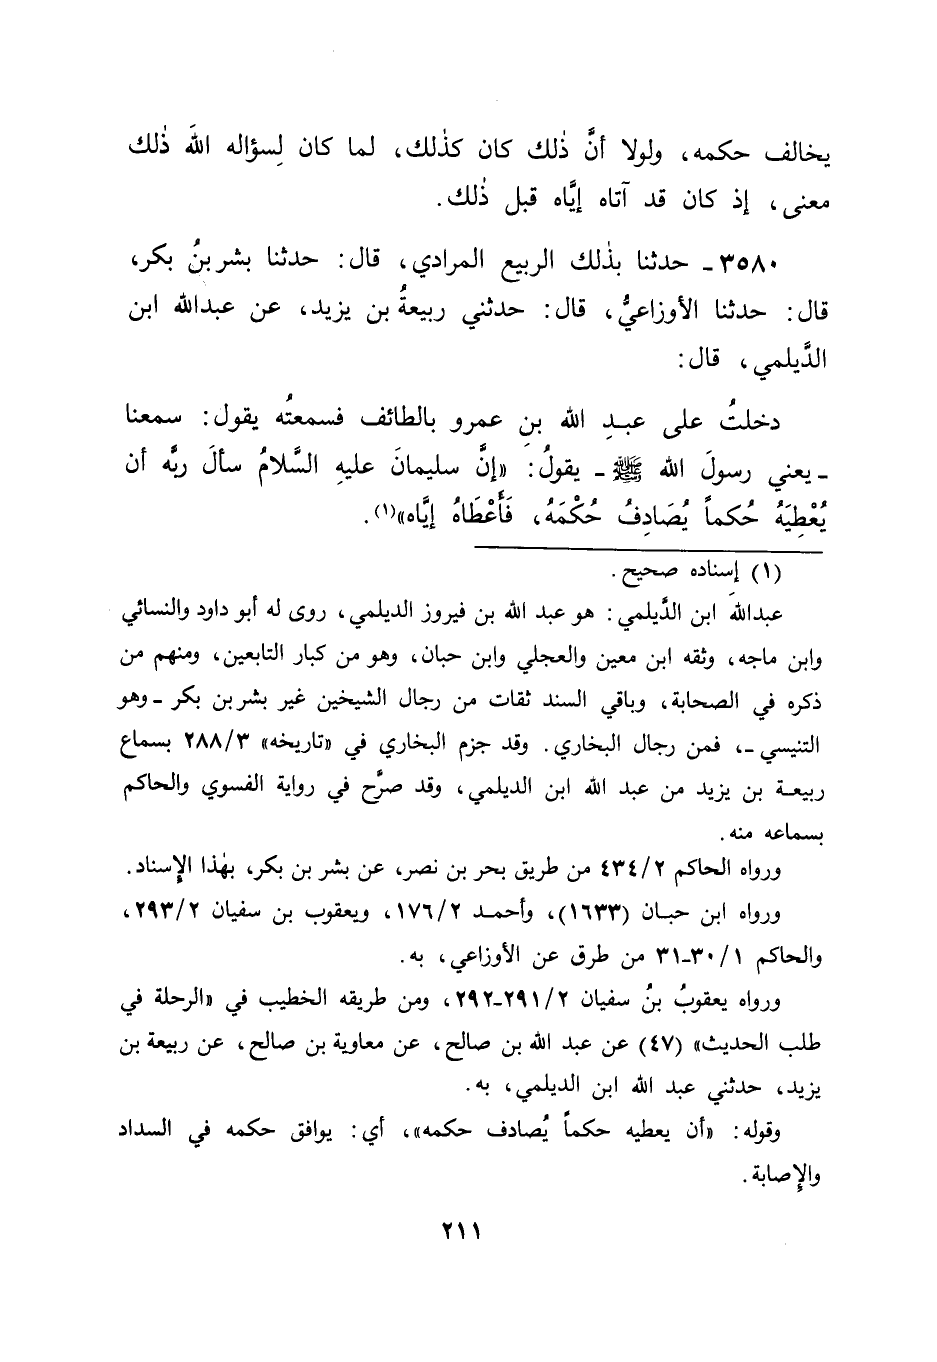 يخالف حكمه، ولولا أنَّ ذٰلك كان كذٰلك، لما كان لِسؤاله اللهَ ذٰلك
معنى، إذ كان قد آتاه إيَّاه قبل ذٰلك.
٣٥٨٠ـ حدثنا بذٰلك الربيع المرادي، قال: حدثنا بشر بنُ بكر،
قال: حدثنا الأوزاعيُّ، قال: حدثني ربيعةُ بن يزيد، عن عبدالله ابن
الدَّيلمي، قال:
دخلتُ على عبدِ الله بنِ عمرو بالطائف فسمعتُه يقول: سمعنا
ـ يعني رسولَ الله ﷺ ـ يقولُ: «إنَّ سليمانَ عليهِ السَّلامُ سألَ ربَّه أن
يُعْطِيَهُ حُكماً يُصَادِفُ حُكْمَهُ، فَأَعْطَاهُ إيَّاه»(١).
(١) إسناده صحيح.
عبدالله ابن الدَّيلمي: هو عبد الله بن فيروز الديلمي، روى له أبو داود والنسائي
وابن ماجه، وثقه ابن معين والعجلي وابن حبان، وهو من كبار التابعين، ومنهم من
ذكره في الصحابة، وباقي السند ثقات من رجال الشيخين غير بشر بن بكر ـ وهو
التنيسي ـ، فمن رجال البخاري. وقد جزم البخاري في «تاريخه» ٢٨٨/٣ بسماع
ربيعة بن يزيد من عبد الله ابن الديلمي، وقد صرَّح في رواية الفسوي والحاكم
بسماعه منه.
ورواه الحاكم ٤٣٤/٢ من طريق بحر بن نصر، عن بشر بن بكر، بهٰذا الإِسناد.
ورواه ابن حبان (١٦٣٣)، وأحمد ١٧٦/٢، ويعقوب بن سفيان ٢٩٣/٢،
والحاكم ٣٠/١ـ٣١ من طرق عن الأوزاعي، به.
ورواه يعقوبُ بنُ سفيان ٢٩١/٢ـ٢٩٢، ومن طريقه الخطيب في «الرحلة في
طلب الحديث» (٤٧) عن عبد الله بن صالح، عن معاوية بن صالح، عن ربيعة بن
يزيد، حدثني عبد الله ابن الديلمي، به.
وقوله: «أن يعطيه حكماً يُصادف حكمه»، أي: يوافق حكمه في السداد
والإِصابة.
٢١١